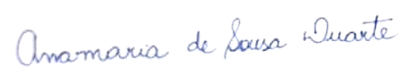 Anamaria de Sousa Duarte